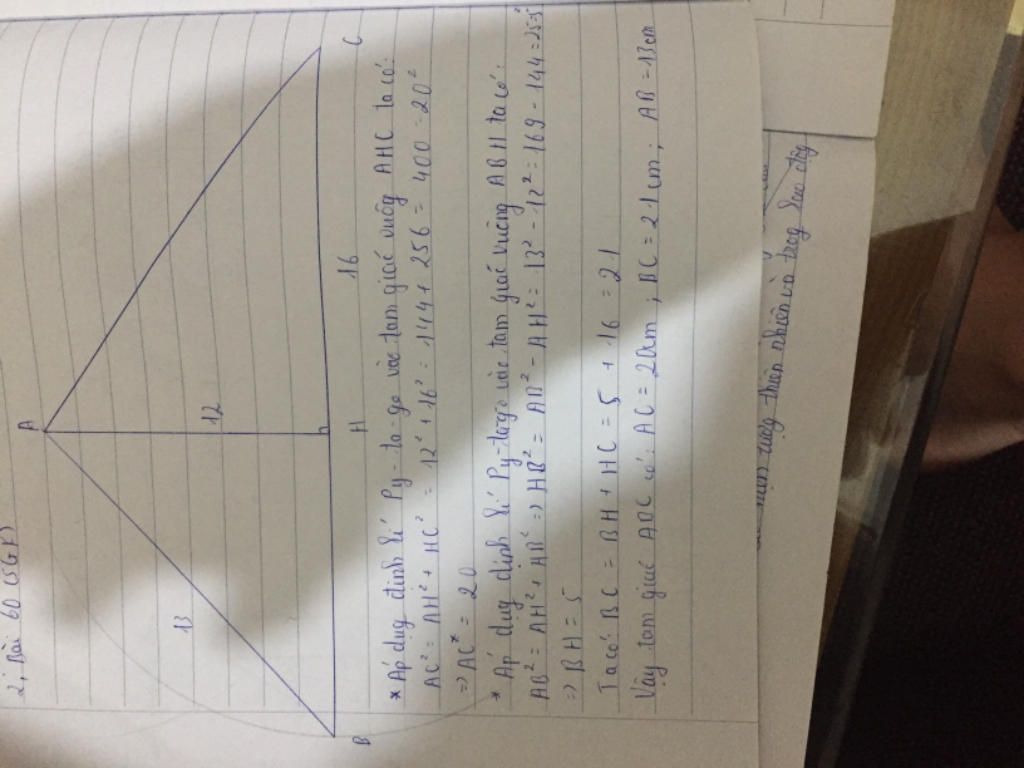 2, Bài 60 (SGK)
A
13
12
B
H
16
C
* Áp dụng định lí Py-ta-go vào tam giác vuông AHC ta có:
AC² = AH² + HC² = 12² + 16² = 144 + 256 = 400 = 20²
=> AC = 20
* Áp dụng định lí Py-tago vào tam giác vuông ABH ta có:
AB² = AH² + HB² => HB² = AB² - AH² = 13² - 12² = 169 - 144 = 25 = 5²
=> BH = 5
Ta có BC = BH + HC = 5 + 16 = 21
Vậy tam giác ABC có: AC = 20cm; BC = 21cm; AB = 13cm
thiên nhiên và trong lao động